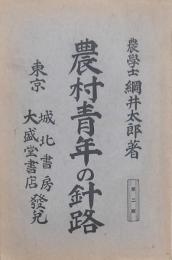 農學士 綱井太郎著
農村青年の針路
第二版
東京 城北書房
大盛堂書店 發兌